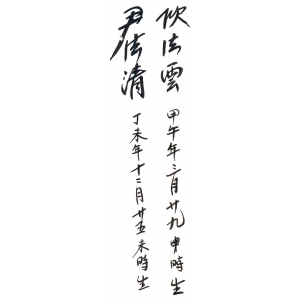 法雲 甲午年三月廿九申時生
尹法清 丁未年十二月廿五未時生